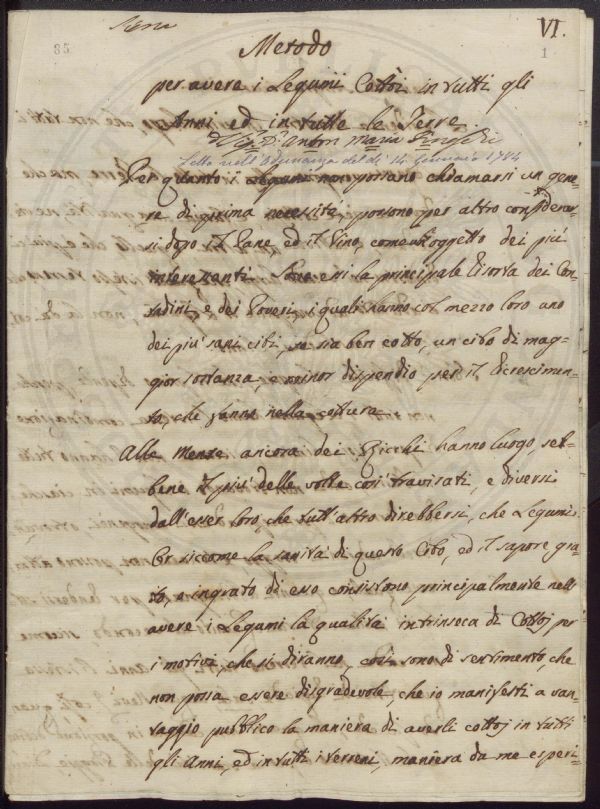 VI.
85
1
Metodo
per avere i Legumi Cottoj in tutti gli
Anni ed in tutte le Terre.
Del Sig. D. Anton Maria
Letto nell'Adunanza del dì 14 Gennaio 1784
Per quanto i Legumi non possano chiamarsi un gene=
re di prima necessità, possono per altro considerar=
si dopo il Pane, ed il Vino, come oggetto dei più
interessanti. Sono essi la principale risorsa dei Con=
tadini, e dei Poveri, i quali hanno col mezzo loro uno
dei più sani cibi, se sia ben cotto, un cibo di mag=
gior sostanza, e minor dispendio per il Ecrescimen=
to, che fanno nella cottura.
Alle Mense ancora dei Ricchi hanno luogo, seb=
bene il più delle volte così travisati, e diversi
dall'esser loro, che tutt'altro direbbersi, che Legumi.
Or siccome la sanità di questo Cibo, ed il sapore gra=
to, o ingrato di esso consistono principalmente nell'
avere i Legumi la qualità intrinseca di Cottoj per
i motivi, che si diranno, così sono di sentimento, che
non possa essere disgradevole, che io manifesti a van=
taggio pubblico la maniera di averli cottoj in tutti
gli Anni, ed in tutti i terreni, maniera da me esperi=